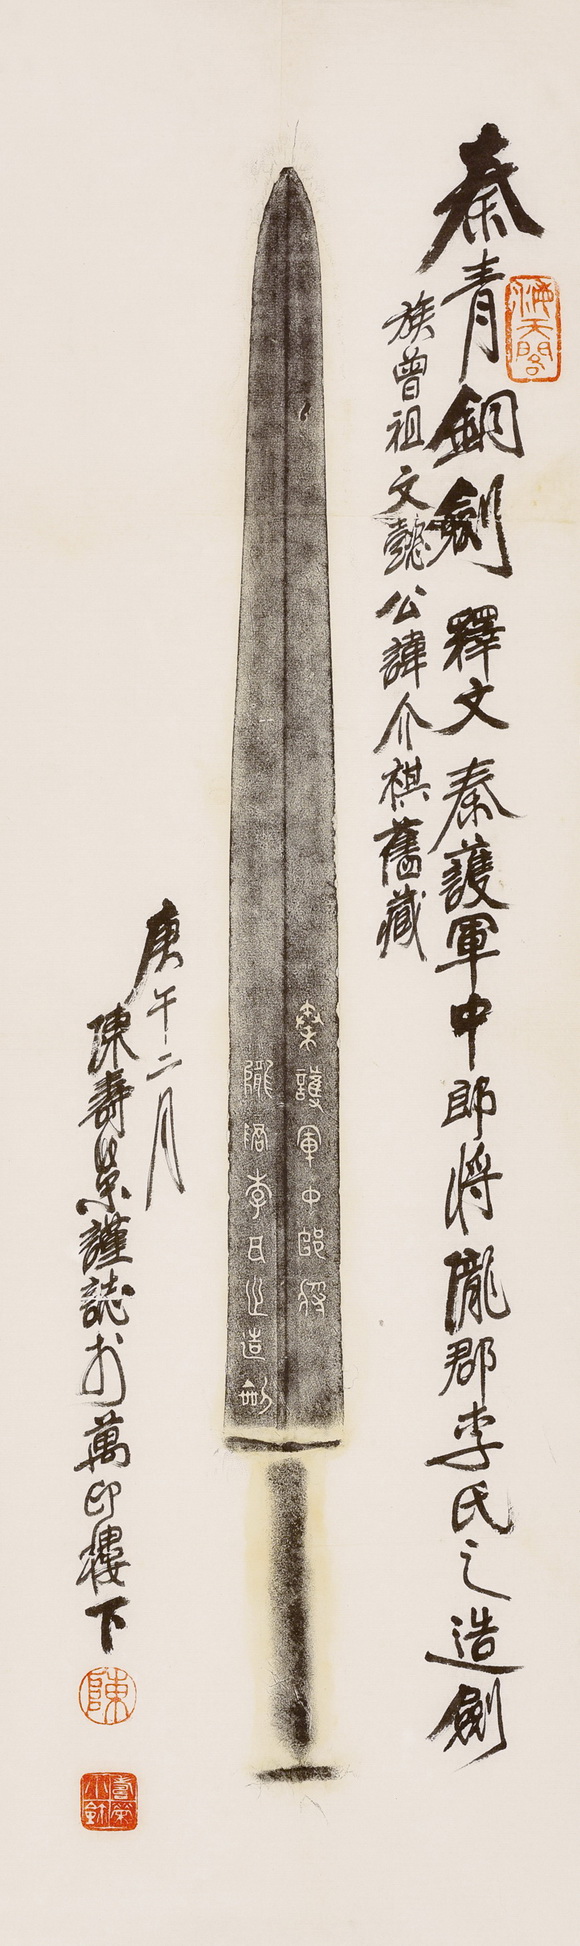 秦青銅劍 釋文 秦護軍中郎將隴郡李氏之造劍
族曾祖文懿公諱介祺舊藏
秦護軍中郎將
隴郡李氏之造劍
庚午二月
陳壽榮謹誌於萬印樓下
陳